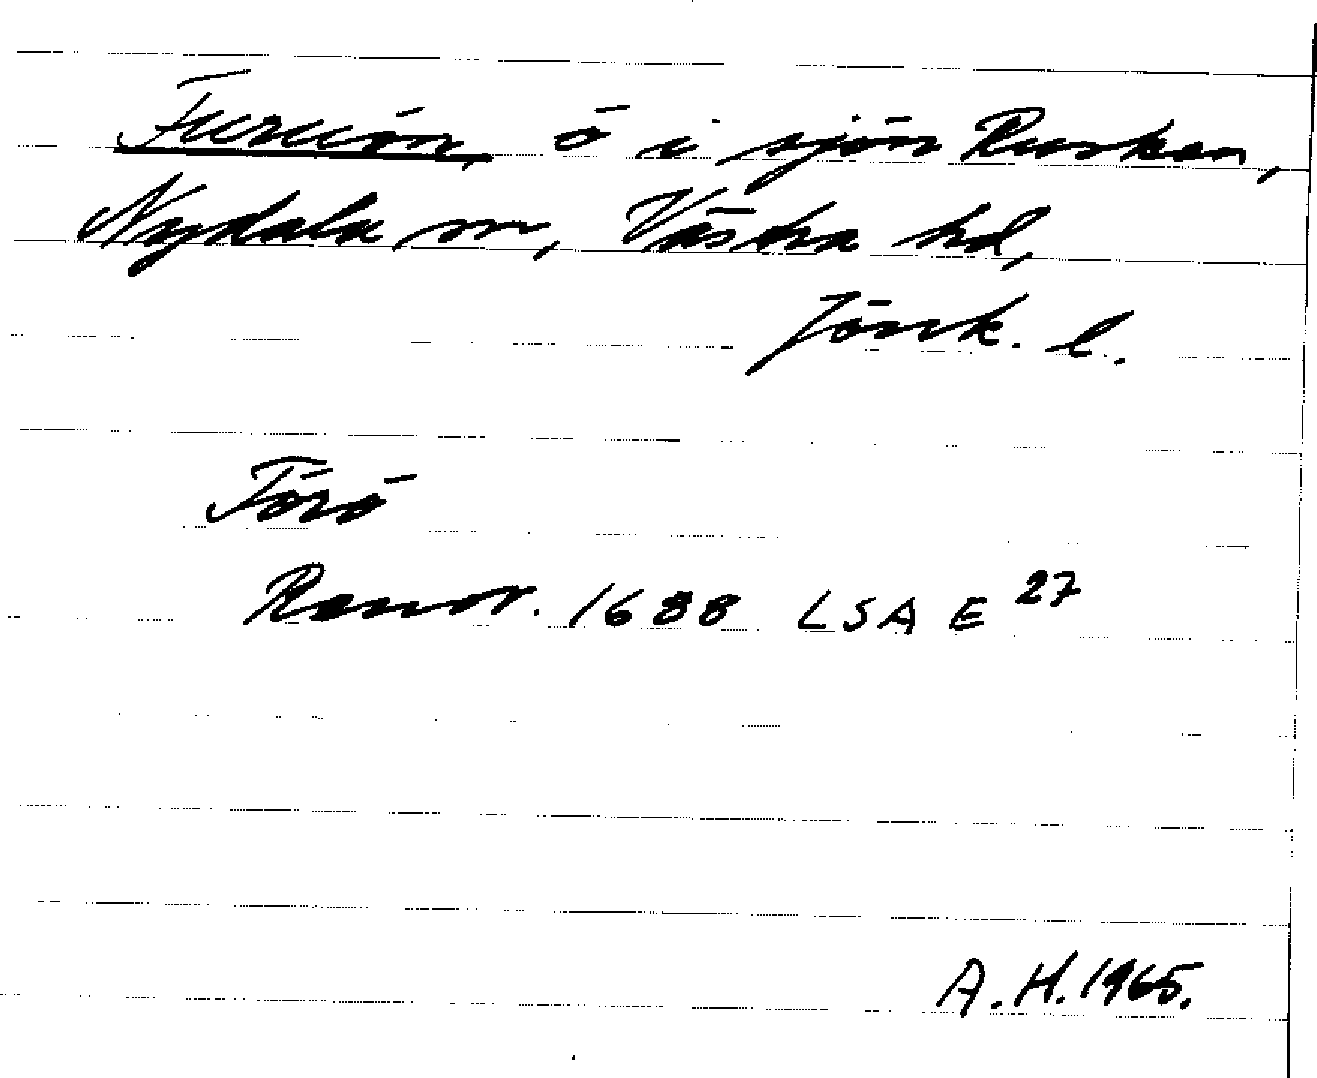 Furuön, ö i sjön Rusken,
Nydala sn, Västra hd,
Jönk. l.
Förö
Renov. 1688 LSA E 27
A.H. 1965.